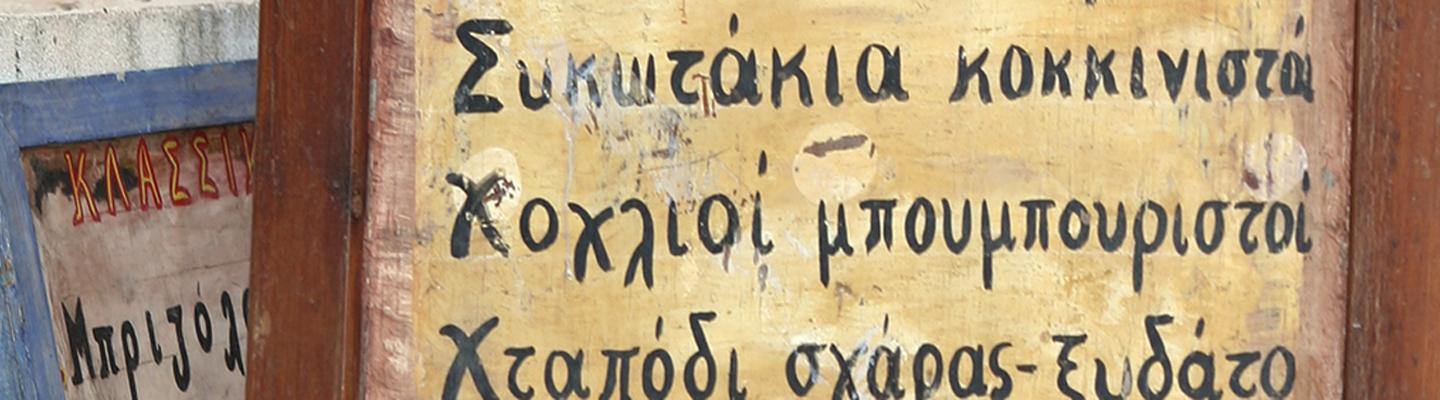 Συκωτάκια κοκκινιστά
Χοχλιοί μπουμπουριστοί
Χταπόδι σχάρας-ξυδάτο